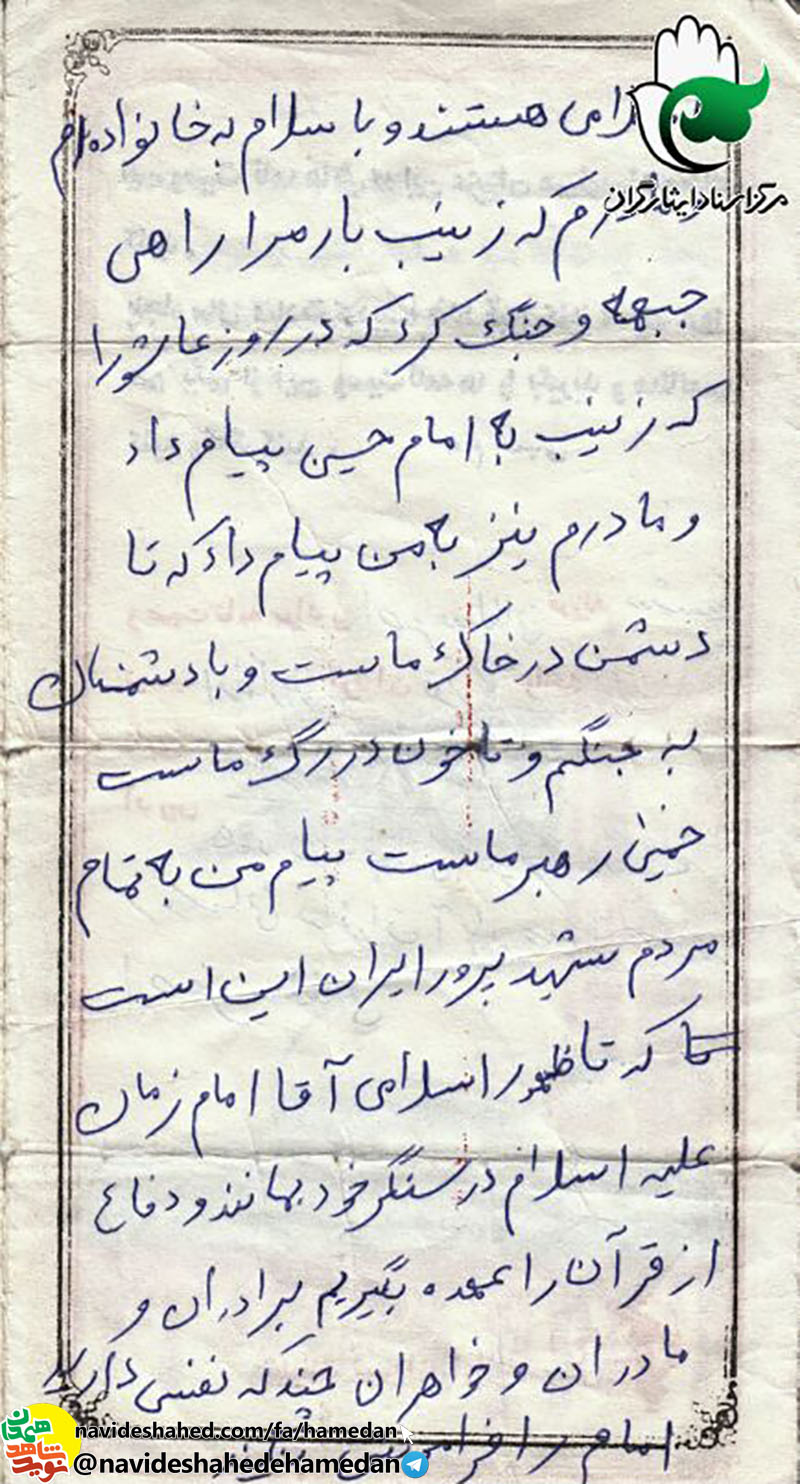 مرکز اسناد ایثارگران
هستند و با سلام به خانواده ام
که زینب بار مرا راهی
جبهه و جنگ کرد که در روز عاشورا
که زینب به امام حسین پیام داد
و مادرم نیز به من پیام داد که تا
دشمن در خاک ماست و با دشمنان
به جنگم و تا خون در رگ ماست
خمینی رهبر ماست پیام من به تمام
مردم شهید پرور ایران این است
که تا ظهور اسلامی آقا امام زمان
علیه اسلام در سنگر خود بمانند و دفاع
از قرآن را عهده بگیریم برادران و
مادران و خواهران چند که نفس دارید
امام را
navideshahed.com/fa/hamedan
@navideshahedehamedan
نوید شاهد همدان